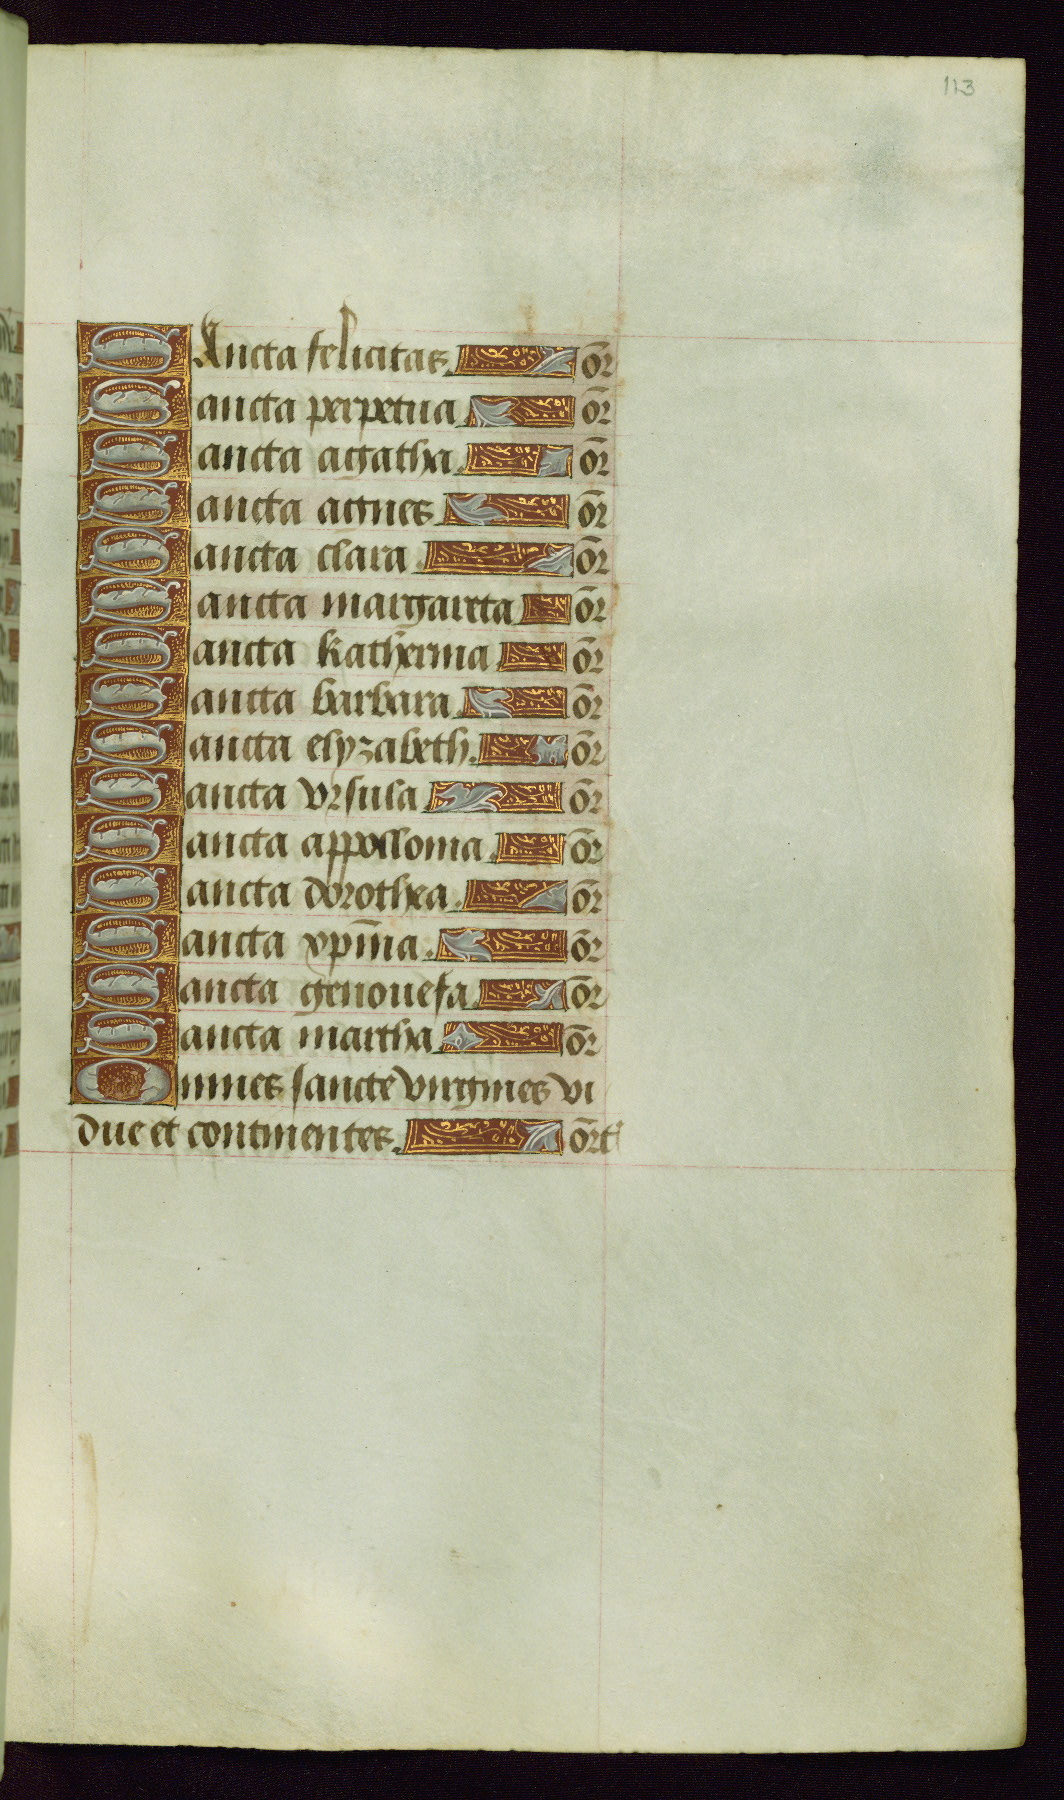 113
SAncta felicitas. or̄
Sancta perpetua. or̄
Sancta agatha. or̄
Sancta agnes. or̄
Sancta clara. or̄
Sancta margareta or̄
Sancta katherina or̄
Sancta barbara. or̄
Sancta elyzabeth. or̄
Sancta vrsula or̄
Sancta appollonia. or̄
Sancta dorothea. or̄
Sancta xp̄ina. or̄
Sancta genouefa or̄
Sancta martha or̄
Omnes sancte virgines vi
due et continentes. or̄t